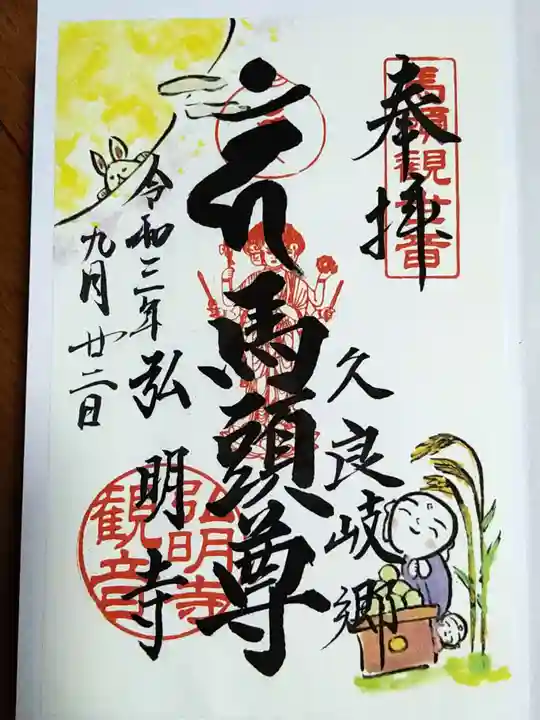 奉拝
馬頭観世音
久良岐郷
馬頭尊
弘明寺
弘明寺観音
令和三年
九月廿二日